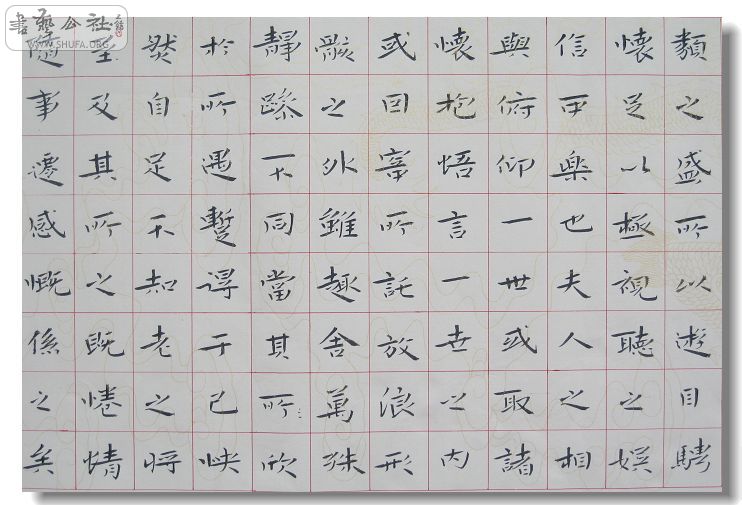 類之盛所以遊目騁
懷足以極視聽之娛
信可樂也夫人之相
與俯仰一世或取諸
懷抱悟言一世之内
或因寄所託放浪形
骸之外雖趣舍萬殊
靜躁不同當其所欣
於所遇暫得于己怏
然自足不知老之將
至及其所之既惓情
隨事遷感慨係之矣
書藝公社
WWW.SHUFA.ORG